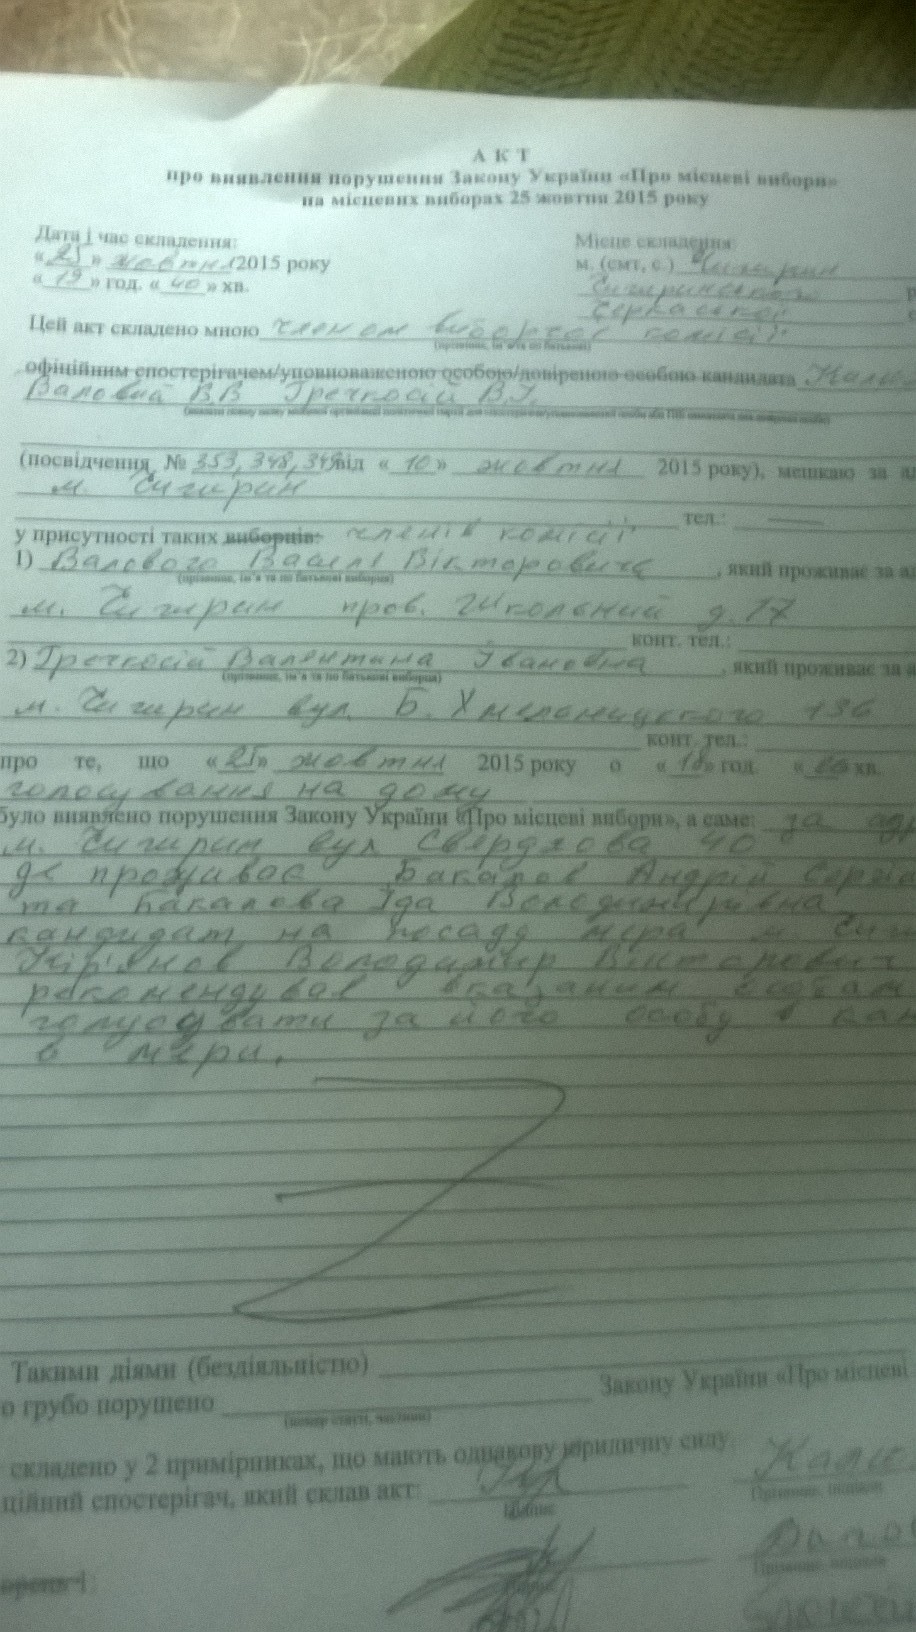 А К Т
про виявлення порушення Закону України «Про місцеві вибори»
на місцевих виборах 25 жовтня 2015 року
Дата і час складення:
«25» жовтня 2015 року
«19» год. «40» хв.
Місце складення:
м. (смт, с.) Чигирин
Чигиринського
Черкаської
Цей акт складено мною членом виборчої комісії
(прізвище, ім'я та по батькові)
офіційним спостерігачем/уповноваженою особою/довіреною особою кандидата
Валовий В.В Гречкосій В.І.
(посвідчення № 353, 348, 349 від «10» жовтня 2015 року), мешкаю за
м. Чигирин
тел.:
у присутності таких виборців: членів комісії,
1) Валового Василя Вікторовича , який проживає за
(прізвище, ім'я та по батькові виборця)
м. Чигирин пров. Шкільний д. 17
конт. тел.:
2) Гречкосій Валентина Іванівна , який проживає за
(прізвище, ім'я та по батькові виборця)
м. Чигирин вул. Б. Хмельницького 136
конт. тел.:
про те, що «25» жовтня 2015 року о «18» год. « хв.
голосування на дому
було виявлено порушення Закону України «Про місцеві вибори», а саме: за
м. Чигирин вул Свердлова 40
де проживає Бакалов Андрій
та Бакалова Іда Володимирівна
кандидат на посаду мера м.
Володимир Вікторович
рекомендував вказаним особам
голусувати за його особу в
в мери.
Такими діями (бездіяльністю)
грубо порушено Закону України «Про місцеві
(номер статті, частини)
складено у 2 примірниках, що мають однакову юридичну силу.
спостерігач, який склав акт:
підпис
Прізвище, ініціали
Прізвище, ініціали